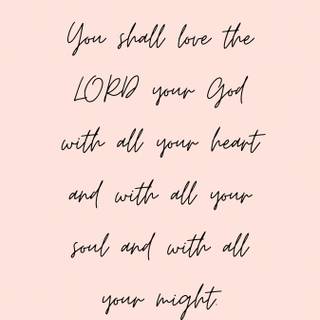 You shall love the
LORD your God
with all your heart
and with all your
soul and with all
your might.